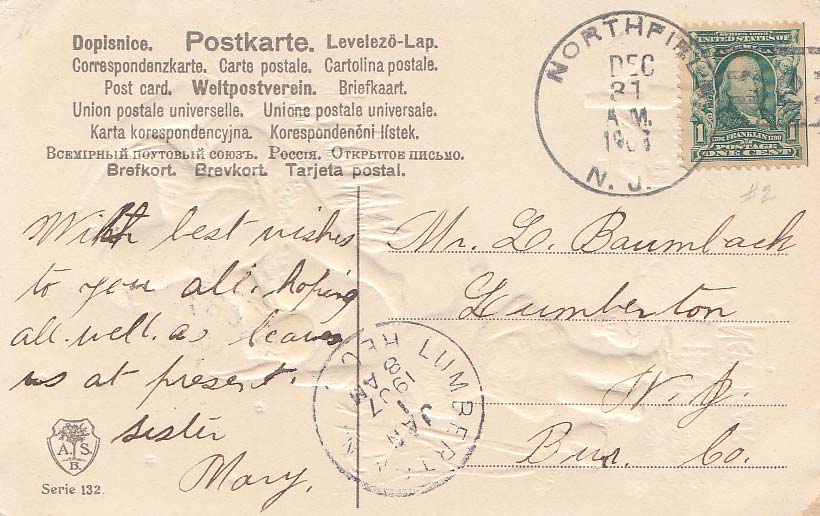 Dopisnice. Postkarte. Levelező-Lap.
Correspondenzkarte. Carte postale. Cartolina postale.
Post card. Weltpostverein. Briefkaart.
Union postale universelle. Unione postale universale.
Karta korespondencyjna. Korespondenční lístek.
Всемірный почтовый союзъ. Россія. Открытое письмо.
Brefkort. Brevkort. Tarjeta postal.
NORTHFIELD
DEC
31
A.M.
N. J.
SERIES 1902
UNITED STATES OF
AMERICA
1 FRANKLIN 1790 1
POSTAGE
ONE CENT
#2
With best wishes
to you all. hoping
all. well. as leaves
us at present.
sister
Mary.
Mr. L. Baumbach
Lumberton
N. J.
Bur. Co.
LUMBERTON
REC'D
JAN
1
8 AM
1907
A. S.
B.
Serie 132.